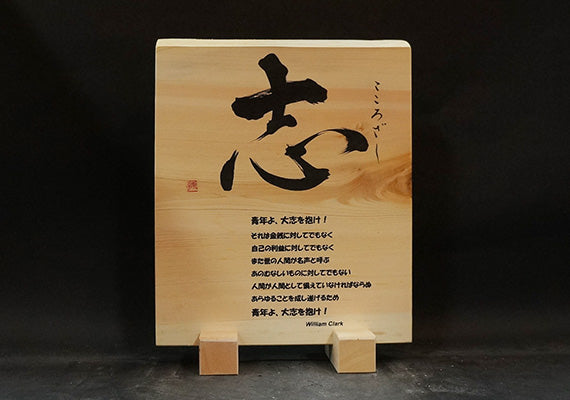 志
こころざし
青年よ、大志を抱け！
それは金銭に対してでもなく
自己の利益に対してでもなく
また世の人間が名声と呼ぶ
あのむなしいものに対してでもない
人間が人間として備えていなければならぬ
あらゆることを成し遂げるため
青年よ、大志を抱け！
William Clark